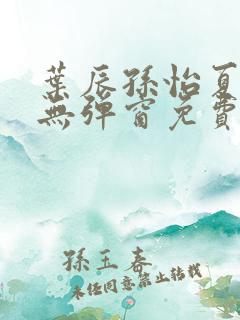 葉辰孫怡夏
無彈窗免費
孫玉春
未经同意禁止转载